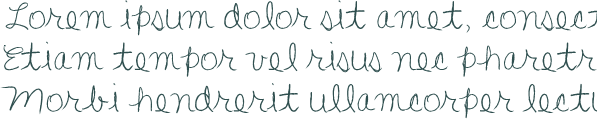 Lorem ipsum dolor sit amet, consect
Etiam tempor vel risus nec pharetr
Morbi hendrerit ullamcorper lectu